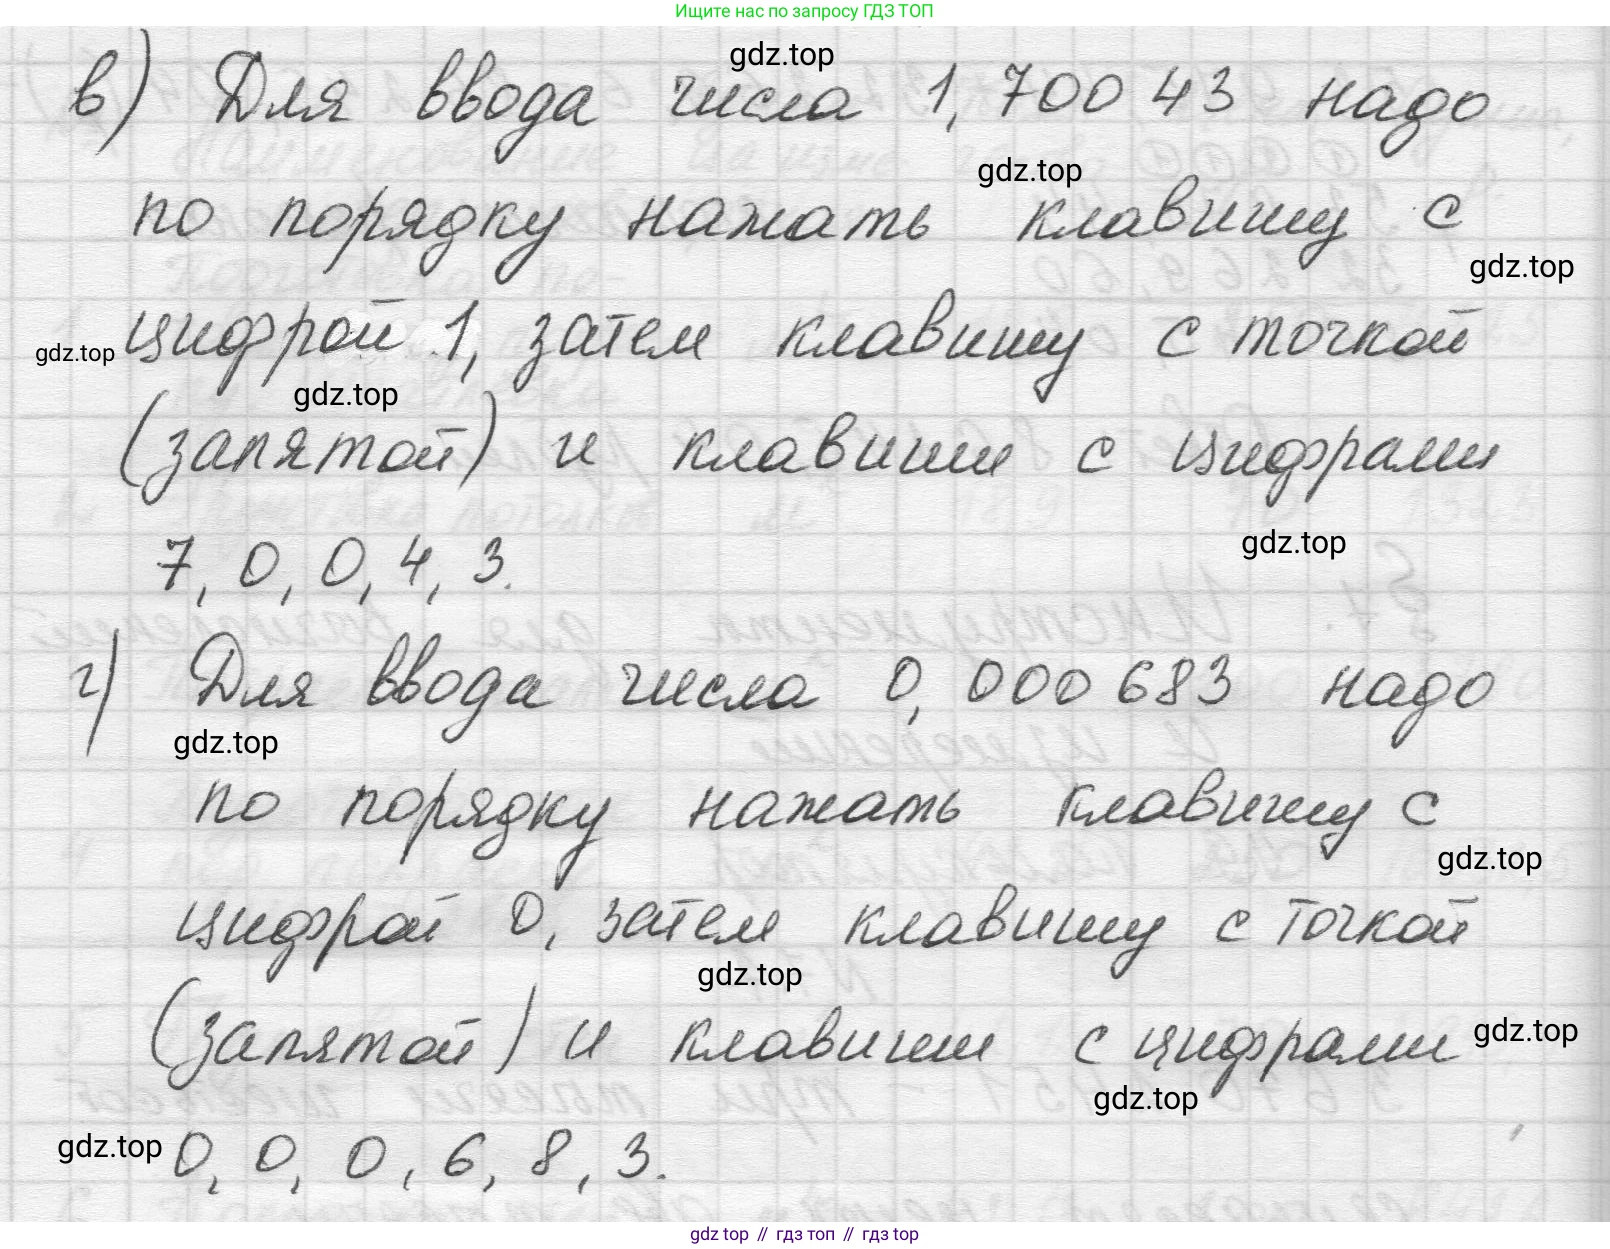 Ищите нас по запросу ГДЗ ТОП
gdz.top
в) Для ввода числа 1,70043 надо
gdz.top
по порядку нажать клавишу с
gdz.top
цифрой 1, затем клавишу с точкой
gdz.top
gdz.top
(запятой) и клавиши с цифрами
gdz.top
7, 0, 0, 4, 3.
г) Для ввода числа 0,000683 надо
gdz.top
по порядку нажать клавишу с
gdz.top
цифрой 0, затем клавишу с точкой
gdz.top
(запятой) и клавиши с цифрами
gdz.top
gdz.top
gdz.top
0, 0, 0, 6, 8, 3.
gdz top // гдз топ // gdz top